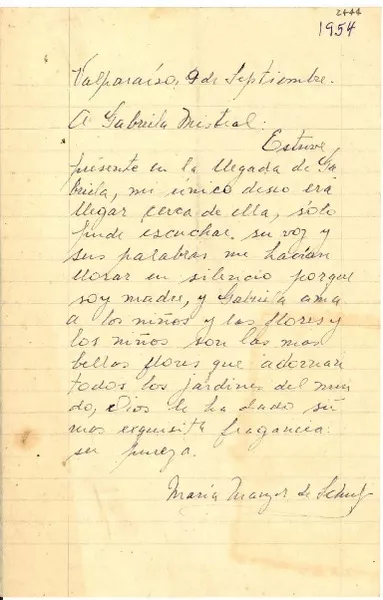 2444
1954
Valparaíso, 9 de Septiembre.
A Gabriela Mistral:
Estuve
présente en la llegada de Ga
briela, mi único deseo erá
llegar cerca de ella, sólo
pude escuchar su voz y
sus palabras me hacían
llorar en silencio porque
soy madre, y Gabriela ama
a los niños y las flores y
los niños son las mas
bellas flores que adornan
todos los jardines del mun
do, Dios le ha dado su
mas exquisita fragancia:
su pureza.
María de